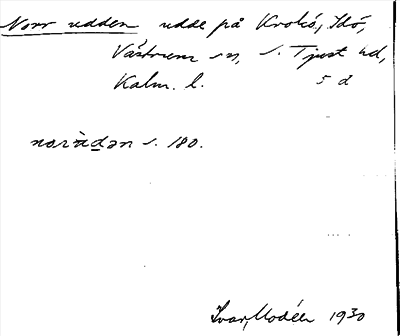 Norr udden udde på Krokö, Idö,
Västrum sn, S. Tjust hd,
Kalm. l. 5 d
norὰdən s. 180.
Ivar Modéer 1930